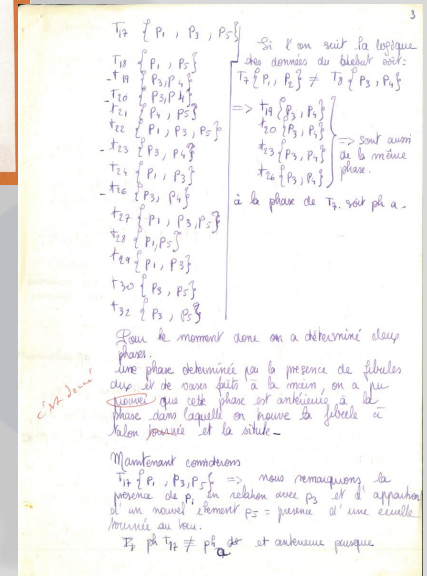 3
T17 { P1 , P3 , P5 }
T18 { P1 , P5 }
- T19 { P3, P4 }
- T20 { P3, P4 }
T21 { P4 , P5 }
t22 { P1 , P3 , P5 }
- t23 { P3 , P4 }
t24 { P1 , P3 }
- t26 { P3, P4 }
t27 { P1 , P3, P5 }
t28 { P1, P5 }
t29 { P1 , P3 }
t30 { P3 , P5 }
t32 { P3 , P5 }
Si l'on suit la logique
des données du début soit :
T7 { P1, P2 } ≠ T8 { P3, P4 }
=> t19 { P3, P4 }
t20 { P3, P4 }
t23 { P3, P4 }
t26 { P3, P4 }
=> sont aussi
de la même
phase.
à la phase de T7. soit ph a.
Pour le moment donc on a déterminé deux
phases :
une phase determinée par la presence de fibules
dux et de vases faits à la main, on a pu
prouver que cette phase est antérieure à la
phase dans laquelle on trouve la fibule à
talon tournée et la situle -
c'est donné
Maintenant considerons
T17 { P1 , P3, P5 } => nous remarquons la
présence de P1 en relation avec P3 et d'apparition
d'un nouvel élement P5 = presence d'une écuelle
tournée au tour.
ph T17 ≠ ph a et anterieure puisque